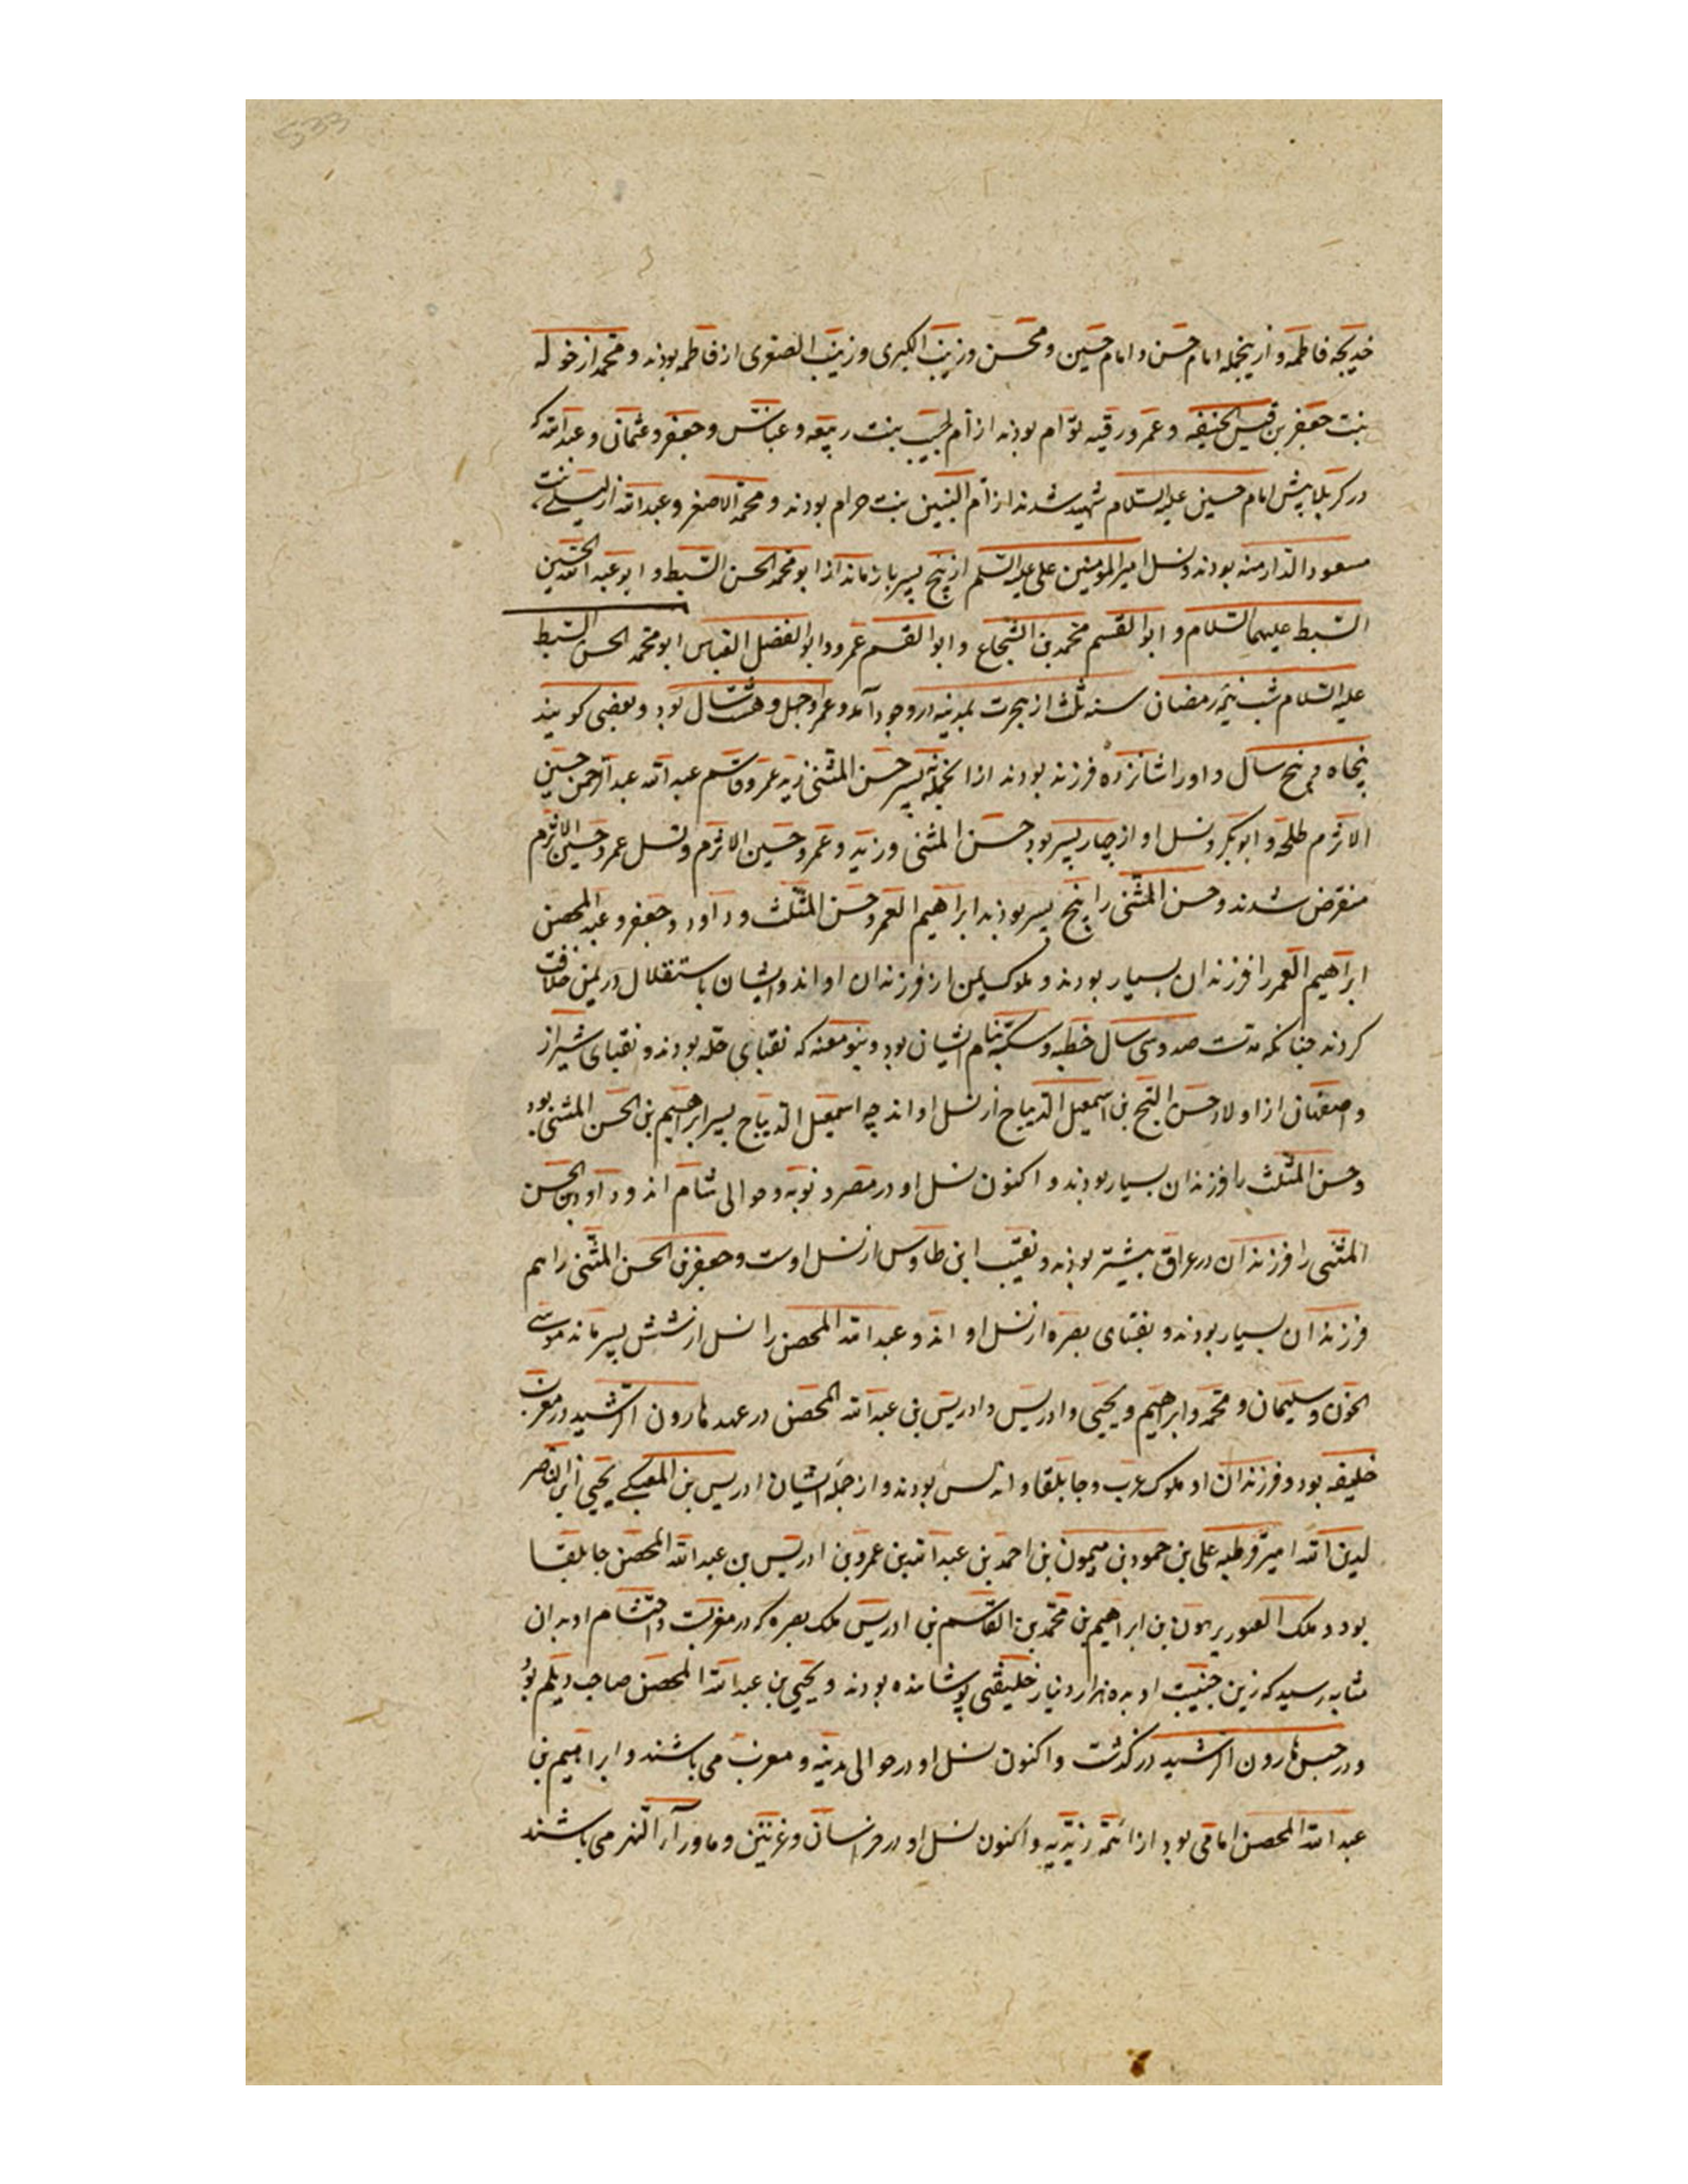 خدیجه فاطمه و ازینجمله امام حسن و امام حسین و محسن و زینب الکبری و زینب الصغری از فاطمه بودند و محمد از خوله
بنت جعفر بن قیس الحنیفه و عمر و رقیه توأم بودند از ام حبیب بنت ربیعه و عباس و جعفر و عثمان و عبدالله که
در کربلا پیش امام حسین علیه السلام شهید شدند از ام البنین بنت حرام بودند و محمد الاصغر و عبدالله از لیلی بنت
مسعود الدارمنه بودند و نسل امیرالمومنین علی علیه السلم از پنج پسر باز ماند از ابو محمد الحسن السبط و ابو عبدالله الحسین
السبط علیهما السلام و ابو القسم محمد بن الشجاع و ابو القسم عمر و ابو الفضل العباس ابو محمد الحسن السبط
علیه السلام شب نیمه رمضان سنه ثلث از هجرت بمدینه در وجود آمد و عمر او چهل و هشت سال بود و بعضی کویند
پنجاه و پنج سال و او را شانزده فرزند بودند از انجمله نه پسر حسن المثنی زید عمر و قاسم عبدالله عبدالرحمن حسین
الاثرم طلحه و ابوبکر و نسل او از چار پسر بود حسن المثنی و زید و عمر و حسین الاثرم و نسل عمر و حسین الاثرم
منقرض شدند و حسن المثنی را پنج پسر بودند ابراهیم الغمر و حسن المثلث و داود و جعفر و عبدالمحصن
ابراهیم الغمر را فرزندان بسیار بودند و ملوک یمن از فرزندان او اند و ایشان باستقلال در یمن خلافت
کردند چنانکه مدت صد و سی سال خطبه و سکه بنام ایشان بود و بنو معنه که نقبای حله بودند و نقبای شیراز
و اصفهان از اولاد حسن التج بن اسمعیل الدیباج از نسل او اند چه اسمعیل الدیباج پسر ابراهیم بن الحسن المثنی بود
و حسن المثلث را فرزندان بسیار بودند و اکنون نسل او در مصر و نوبه و حوالی شام اند و داود بن الحسن
المثنی را فرزندان در عراق بیشتر بودند و نقیب ابن طاوس از نسل اوست و جعفر بن الحسن المثنی را هم
فرزندان بسیار بودند و نقبای بصره از نسل او اند و عبدالله المحصن را نسل از شش پسر ماند موسی
الجون و سلیمان و محمد و ابراهیم و یحیی و ادریس و ادریس بن عبدالله المحصن در عهد هارون الرشید در مغرب
خلیفه بود و فرزندان او ملوک عرب و جابلقا و اندلس بودند و از جمله ایشان ادریس بن یحیی الناصر
لدین الله امیر قرطبه علی بن حمود بن میمون بن احمد بن عبدالله بن عمرو بن ادریس بن عبدالله المحصن جابلقا
بود و ملک العور برهون بن ابراهیم بن محمد بن القاسم بن ادریس ملک بصره که در مغربست و احتشام او بدان
مثابه رسید که زین جنیبت او به ده هزار دینار خلیفتی پوشانده بودند و یحیی بن عبدالله المحصن صاحب دیلم بود
و در حبس هارون الرشید در کذشت و اکنون نسل او در حوالی مدینه و مغرب می باشند و ابراهیم بن
عبدالله المحصن امامی بود از ائمه زیدیه و اکنون نسل او در خراسان و غزنین و ماورآء النهر می باشند